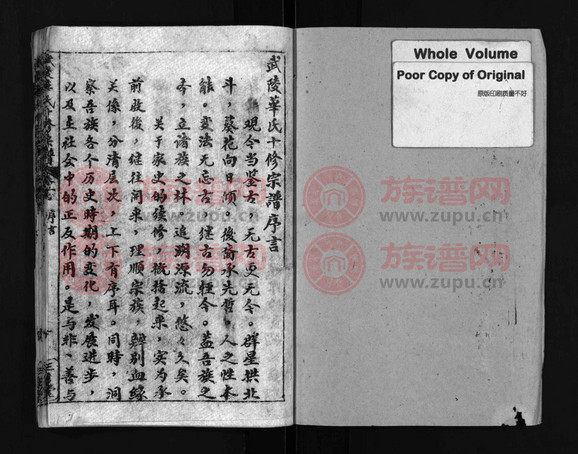 武陵華氏十修宗譜序言
觀今当鉴古,无古更无今。群星拱北
斗,葵花向日傾。後裔承先哲,人之性本
能。变法无忘古,继古勿輕今。盖吾族之
夸,立諸族之林。追溯源流,悠々久矣。
关于家史的續修,概括起來,实为承
前啟後,继往開來,理順宗族,辩别血缘
关係,分清层次,上下有序耳。同時,洞
察吾族各个历史時期的变化,发展进步,
以及在社会中的正反作用。是与非、善与
序言
Whole Volume
Poor Copy of Original
原版印刷质量不好
族谱网
www.zupu.cn
族谱网
www.zupu.cn
族谱网
www.zupu.cn
族谱网
www.zupu.cn